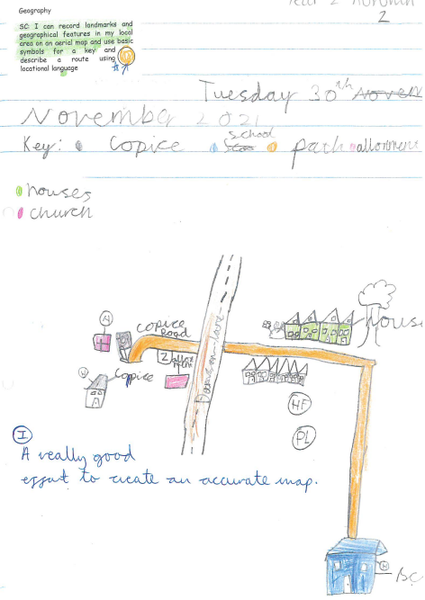 Geography
SC: I can record landmarks and
geographical features in my local
area on an aerial map and use basic
symbols for a key and
describe a route using
locational language
Year 2 Autumn
2
Tuesday 30th
November 2021
Key: Copice school path allotment
houses
church
Copice
Road
houses
Copice
Z
HF
PL
I
A really good
effort to create an accurate map.
SC